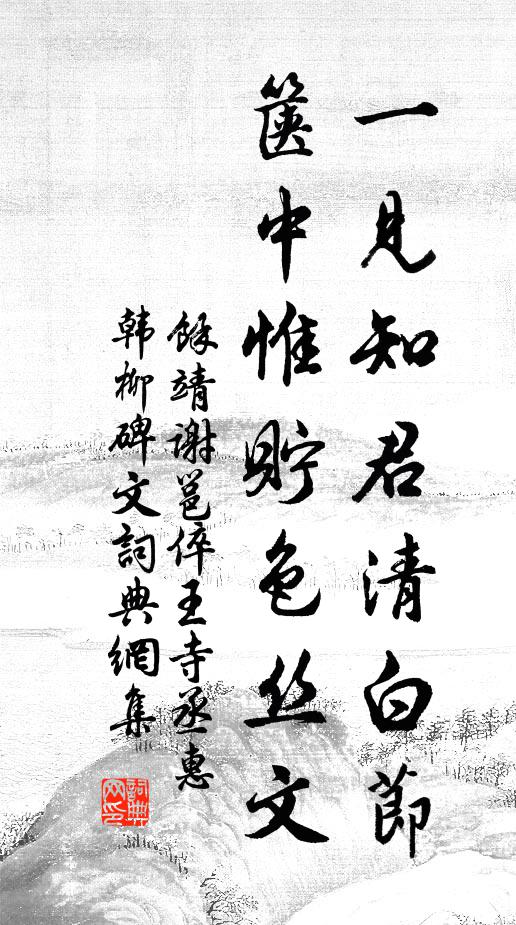 一见知君清白節
箧中惟貯色丝文
餘靖謝邕倅王寺丞惠
韩柳碑文詞典網集
詞典
网印